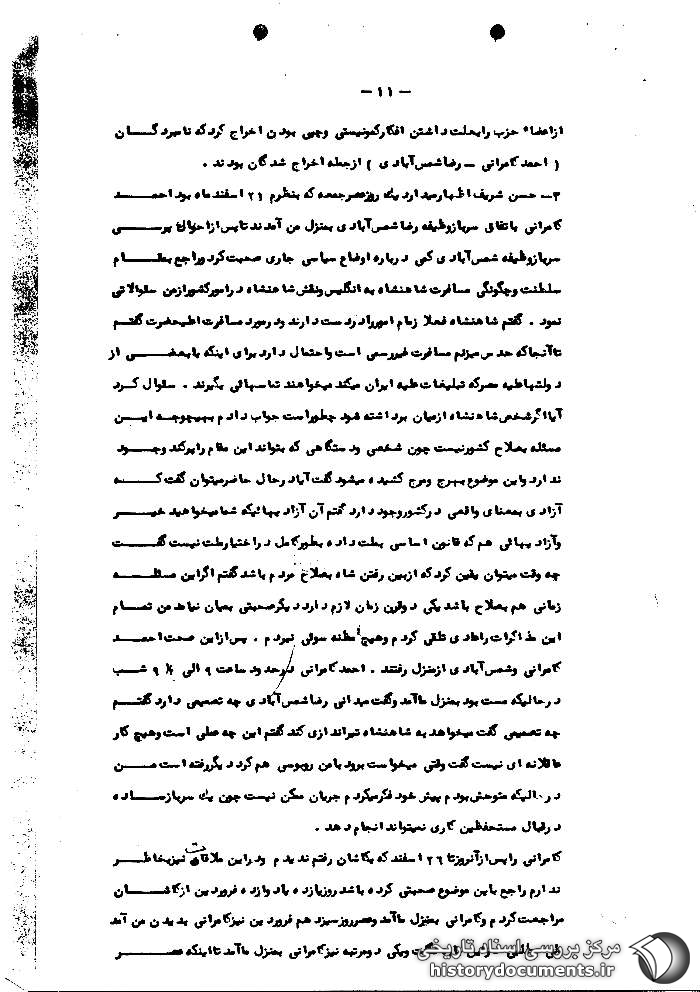 - ۱۱ -
ازاعضاء حزب رابعلت داشتن افکارکمونیستی وچپی بودن اخراج کردکه نامبردگــان
( احمدکامرانی ــ رضاشمس‌آبادی ) ازجمله اخراج شدگان بودند .
۳ــ حسن شریف اظهارمیدارد یك روزعصرجمعه که بنظرم ۲۱ اسفندماه بود احمــد
کامرانی باتفاق سربازوظیفه رضاشمس‌آبادی بمنزل من آمدندتاپس‌ازاحوال پرســی
سربازوظیفه شمس‌آبادی کمی درباره اوضاع سیاسی جاری صحبت‌کرد وراجع بمقــام
سلطنت وچگونگی مسافرت شاهنشاه به انگلیس‌ونقش‌شاهنشاه درامورکشورازمن سئوالاتی
نمود . گفتم شاهنشاه فعلا زمام اموررادردست دارند ودرمورد مسافرت اعلیحضرت گفتــم
تاآنجاکه حدس میزنم مسافرت غیررسمی است واحتمال دارد برای اینکه بابعضــی از
دولتهاعلیه مصرکه تبلیغات علیه ایران میکند میخواهند تماسهائی بگیرند . سئوال کــرد
آیااگرشخص‌شاهنشاه ازمیان برداشته شود چطوراست جواب دادم بهیچوجه ایــن
مسئله بصلاح کشورنیست چون شخصی ودستگاهی که بتواند این مقام راپرکند وجــود
ندارد واین موضوع بهرج ومرج کشیده میشود گفت آیا درحال حاضرمیتوان گفت کــه
آزادی بمعنای واقعی درکشوروجود دارد گفتم آن آزادیهائیکه شمامیخواهید خیــر
وآزادیهائی هم که قانون اساسی بملت داده بطورکامل دراختیارملت نیست گفــت
چه وقت میتوان یقین کرد که ازبین رفتن شاه بصلاح مردم باشد گفتم اگراین مسئلــه
زمانی هم بصلاح باشد یکی دوقرن زمان لازم دارد دیگرصحبتی بمیان نیامد من تمــام
این مذاکرات راعادی تلقی کردم وهیچ مظنه سوئی نبردم . پس‌ازاین صحبت احمــد
کامرانی وشمس‌آبادی ازمنزل رفتند . احمدکامرانی درحدود ساعت ۹ الی ۹/۵ شــب
درحالیکه مست بود بمنزل ماآمد وگفت میدانی رضاشمس‌آبادی چه تصمیمی دارد گفتــم
چه تصمیمی گفت میخواهد به شاهنشاه تیراندازی کند گفتم این چه عملی است وهیچ کار
عاقلانه ای نیست گفت وقتی میخواست برود بامن روبوسی هم کرد دیگررفته است مــن
درحالیکه متوحش‌بودم پیش خود فکرمیکردم جریان ممکن نیست چون یك سربازســاده
درقبال مستحفظین کاری نمیتواند انجام دهد .
کامرانی راپس‌ازآنروزتا ۲۶ اسفند که بکاشان رفتم ندیدم ودراین ملاقات نیزبخاطــر
ندارم راجع باین موضوع صحبتی کرده باشد روزیازده یادوازده فروردین ازکاشــان
مراجعت‌کردم وکامرانی بمنزل ماآمد وعصرروزسیزدهم فروردین نیزکامرانی بدیدن من آمد
ویکی دومرتبه نیزکامرانی بمنزل ماآمد تااینکه عصــر
مرکز بررسی اسناد تاریخی
historydocuments.ir